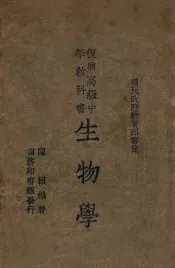 國民政府教育部審定
復興高級中
學教科書
生物學
陳楨編著
商務印書館發行